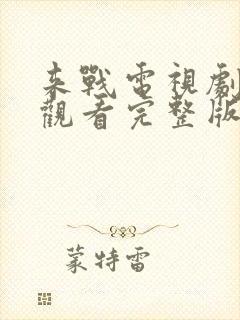 來戰電視劇
觀看完整版
蒙特雷